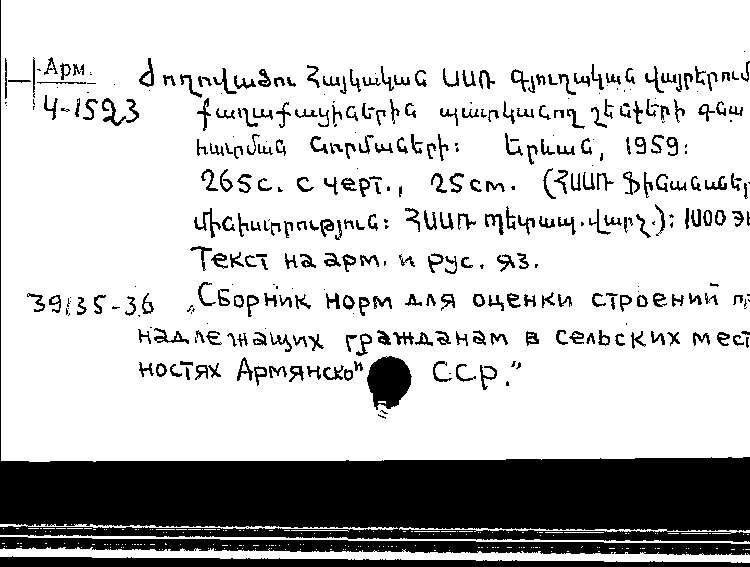 Арм.
4-1523
Ժողովածու Հայկական ՍՍՌ գյուղական վայրերում
քաղաքացիներին պատկանող շենքերի գնա
հատման նորմաների: Երևան, 1959:
265с. с черт., 25см. (ՀՍՍՌ Ֆինանսներ
մինիստրություն: ՀՍՍՌ պետապ. վարչ.): 1000 эк
Текст на арм. и рус. яз.
39135-36 „Сборник норм для оценки строений п
надлежащих гражданам в сельских мест
ностях Армянской ССР."